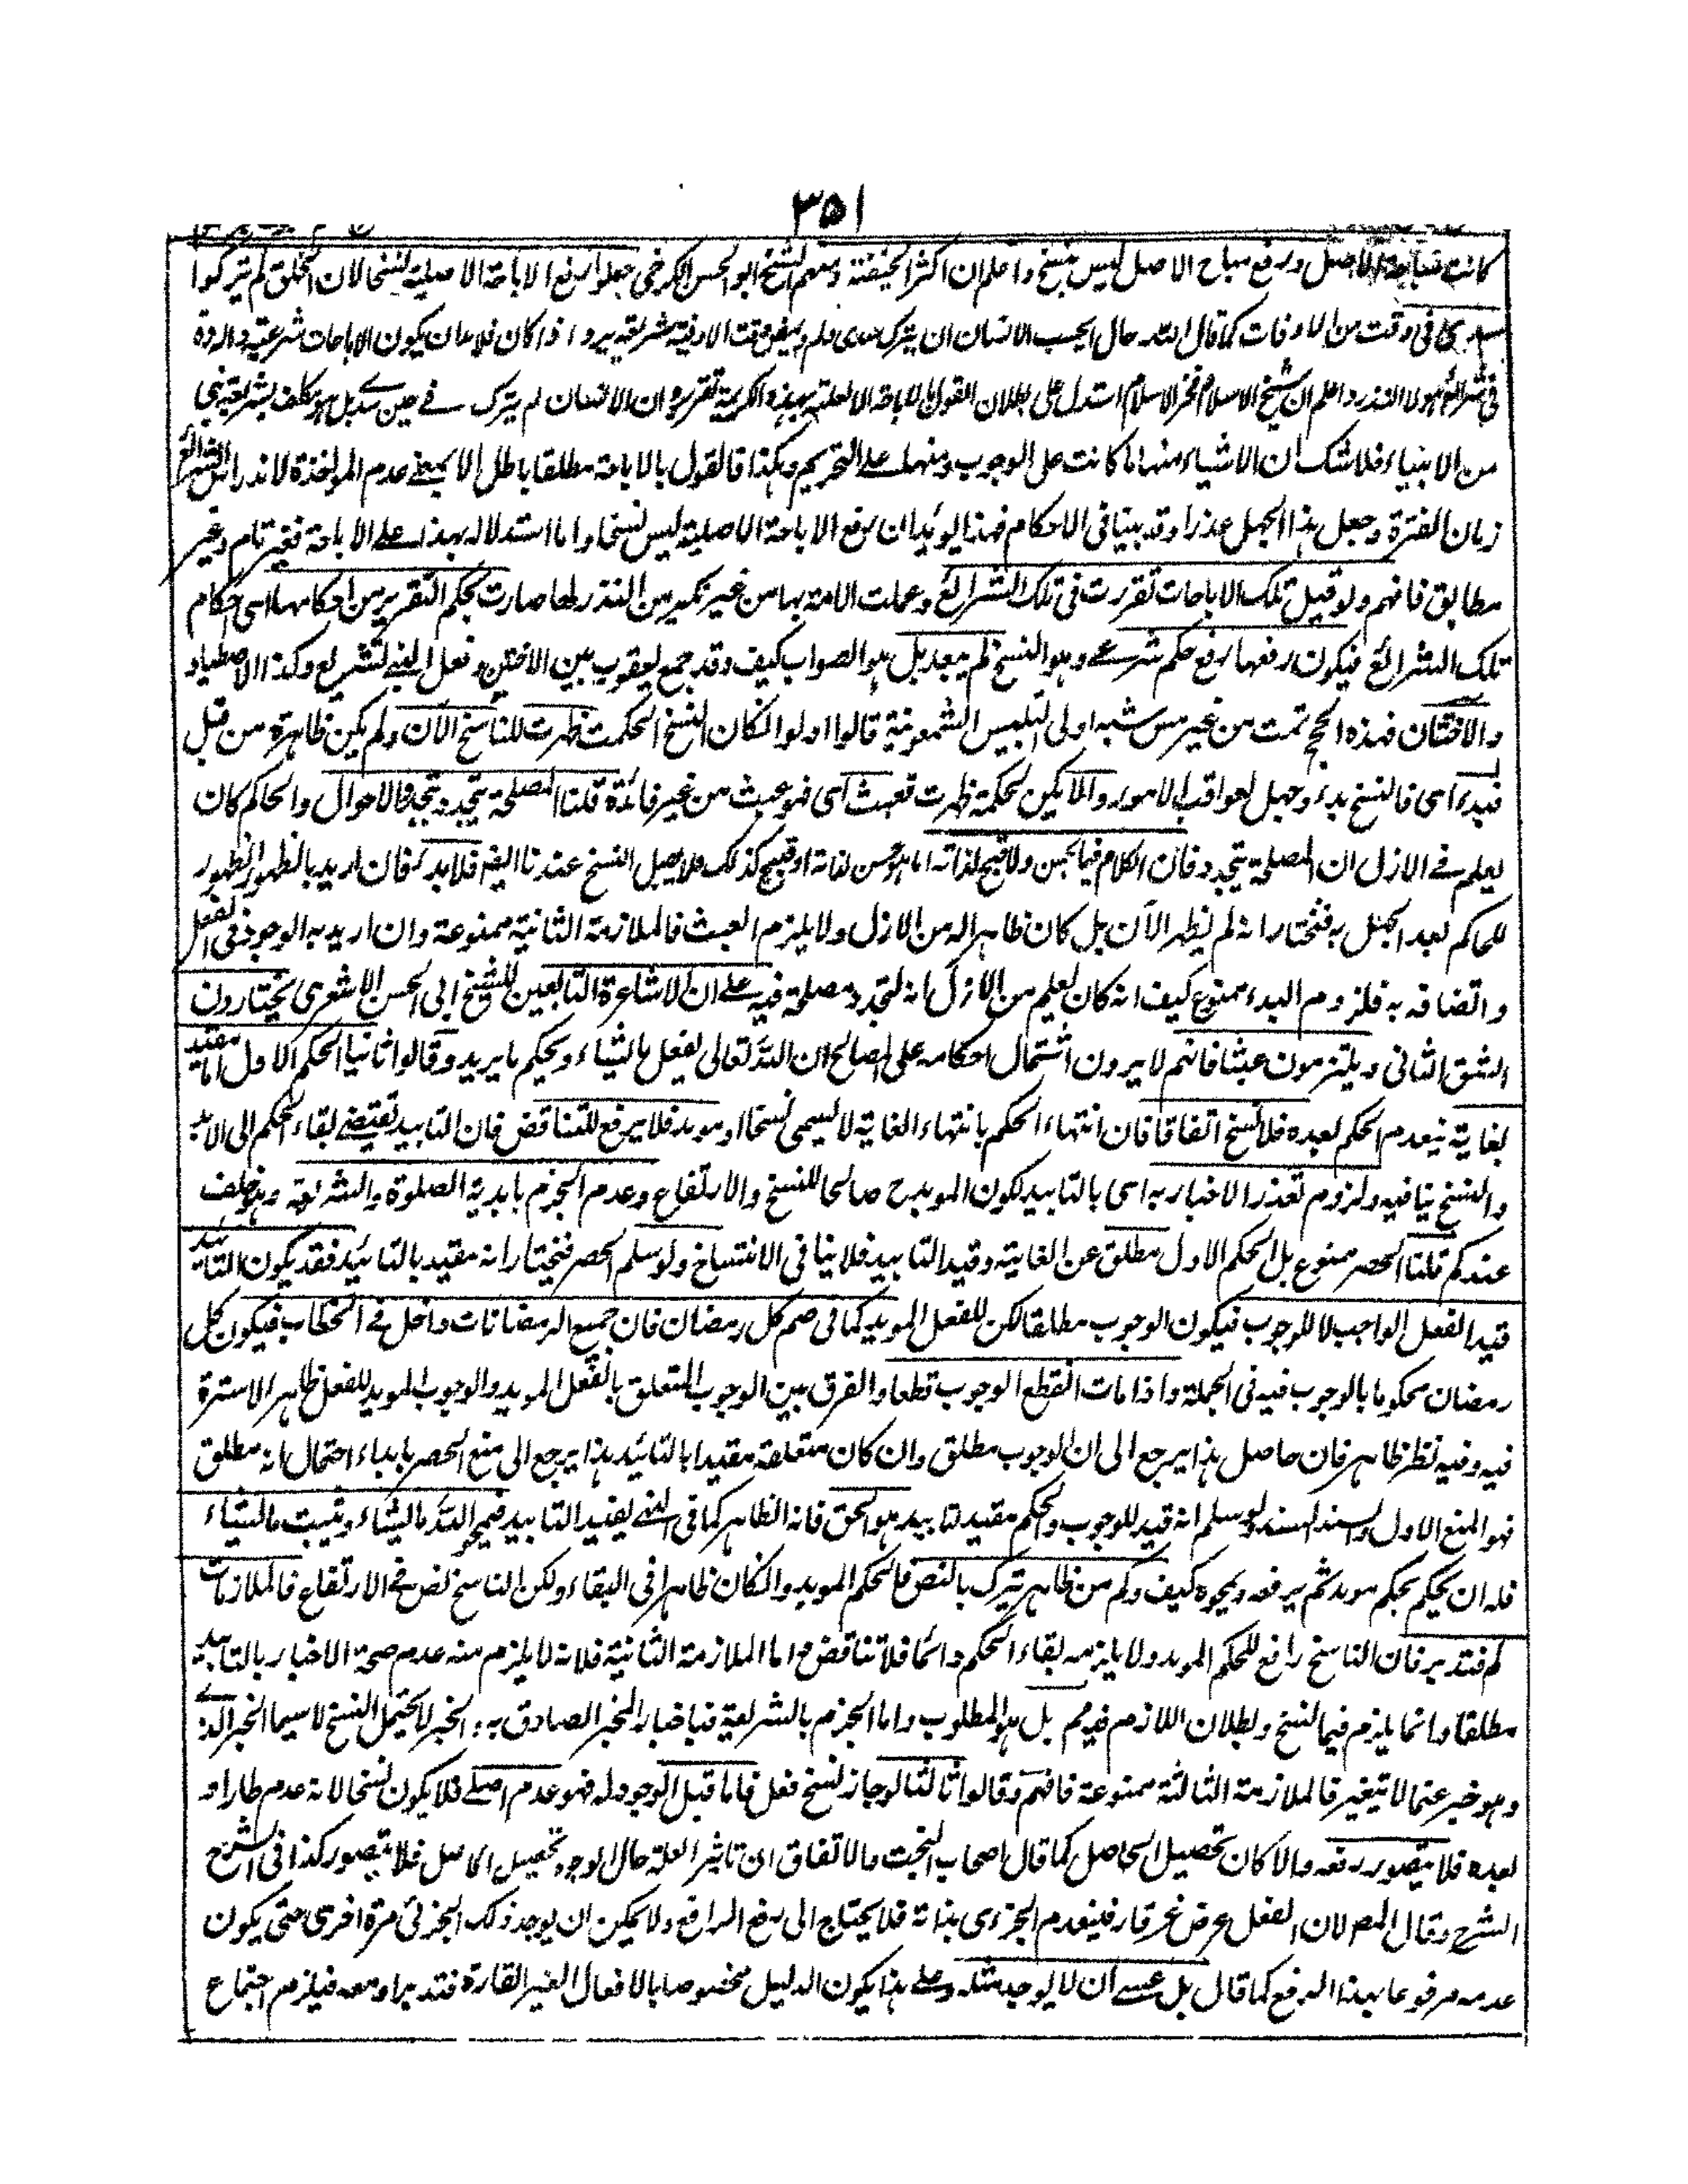 ٣٥١
كانت مباحة الاصل ورفع مباح الاصل ليس بنسخ واعلم ان اكثر الحنفية ومنهم الشيخ ابو الحسن الكرخى جعلوا رفع الاباحة الاصلية نسخا لان الخلق لم يتركوا
سدى فى وقت من الاوقات كما قال الله ايحسب الانسان ان يترك سدى ولم يمض وقت الا وفيه شريعة واذا كان فلا بد ان يكون الاباحات شرعية
واعلم ان شيخ الاسلام فخر الاسلام استدل على بطلان القول بالاباحة الاصلية بهذه الكريمة تقريره ان الانسان لم يترك فى حين سدى بل هو مكلف بشريعة نبى
من الانبياء فلا شك ان الاشياء منها ما كانت على الوجوب ومنها على التحريم وهكذا فالقول بالاباحة مطلقا باطل الا بمعنى عدم المواخذة لاندراس الشرائع
زمان الفترة وجعل هذا الجهل عذرا وقد بينا فى الاحكام فهذا يويد ان رفع الاباحة الاصلية ليس نسخا واما استدلاله بهذا على الاباحة فغير تام وغير
مطابق فافهم ولو قيل تلك الاباحات تقررت فى تلك الشرائع وعملت الامة بها من غير نكير من النذر لها صارت بحكم التقرير من احكامها اى احكام
تلك الشرائع فيكون رفعها رفع حكم شرعى وهو النسخ لم يبعد بل هو الصواب كيف وقد جمع يعقوب بين الاختين وفعل النبى تشريع وكذا الاصطياد
والاختتان فهذه الحجج تمت من غير مس شبه اولى التلبيس الشمعونية قالوا اولا لو كان النسخ لحكمة ظهرت للناسخ الآن ولم يكن ظاهرة من قبل
فبداء اى فالنسخ بداء وجهل لعواقب الامور والا يكن لحكمة ظهرت فعبث اى فهو عبث من غير فائدة قلنا المصلحة يتجدد بتجدد الاحوال والحاكم كان
يعلم فى الازل ان المصلحة يتجدد فان الكلام فيما لا حسن ولا قبيح لذاته اما ما هو حسن لذاته او قبيح كذلك فلا يقبل النسخ عندنا ايضا فلا بداء فان اريد بالظهور الظهور
للحاكم بعد الجهل به فنختار انه لم يظهر الآن بل كان ظاهرا له من الازل ولا يلزم العبث فالملازمة الثانية ممنوعة وان اريد به الوجود فى الفعل
واتصافه به فلزوم البداء ممنوع كيف انه كان يعلم من الازل انه لتجدد مصلحة فيه على ان الاشاعرة التابعين للشيخ ابى الحسن الاشعرى يختارون
الشق الثانى ويلتزمون عبثا فانهم لا يرون اشتمال احكامه على المصالح ان الله تعالى يفعل ما يشاء ويحكم ما يريد وقالوا ثانيا الحكم الاول اما مقيد
بغاية فيعدم الحكم بعده فلا نسخ اتفاقا فان انتهاء الحكم بانتهاء الغاية لا يسمى نسخا او موبد فلا يرفع للتناقض فان التابيد يقتضى بقاء الحكم الى الابد
والنسخ ينافيه ولزوم تعذر الاخبار به اى بالتابيد لكون الموبد ح صالحا للنسخ والارتفاع وعدم الجزم بابدية الصلوة والشريعة وهو خلف
عندكم قلنا الحصر ممنوع بل الحكم الاول مطلق عن الغاية وقيد التابيد فلا ينافى الانتساخ ولو سلم الحصر فنختار انه مقيد بالتابيد فقد يكون التابيد
قيد الفعل الواجب لا للوجوب فيكون الوجوب مطلقا لكن للفعل الموبد كما فى صم كل رمضان فان جميع الرمضانات داخل فى الخطاب فيكون كل
رمضان محكوما بالوجوب فيه فى الجملة واذا مات انقطع الوجوب قطعا والفرق بين الوجوب المتعلق بالفعل الموبد والوجوب الموبد للفعل ظاهر لا سترة
فيه وفيه نظر ظاهر فان حاصل هذا يرجع الى ان الوجوب مطلق وان كان متعلقه مقيدا بالتابيد هذا يرجع الى منع الحصر بابداء احتمال انه مطلق
فهو المنع الاول والسند السند ولو سلم انه قيد للوجوب والحكم مقيد بتابيد هو الحق فانه الظاهر كما فى النهى يفيد التابيد فيمحو الله ما يشاء ويثبت ما يشاء
فله ان يحكم بحكم موبد ثم يرفعه ويمحوه كيف وكم من ظاهر يترك بالنص فالحكم الموبد وان كان ظاهرا فى البقاء ولكن الناسخ نص فى الارتفاع فالملازمات
لم فتدبر فان الناسخ رافع للحكم الموبد ولا يلزمه بقاء الحكم دائما فلا تناقض واما الملازمة الثانية فلانه لا يلزم منه عدم صحة الاخبار بالتابيد
مطلقا وانما يلزم فيما نسخ وبطلان اللازم فيه مم بل هو المطلوب واما الجزم بالشريعة فباخبار المخبر الصادق به والخبر لا يحتمل النسخ لا سيما الخبر الذى
وهو خبر عما لا يتغير فالملازمة الثالثة ممنوعة فافهم وقالوا ثالثا لو جاز نسخ فعل فاما قبل الوجود له فهو عدم اصلى فلا يكون نسخا لانه عدم طار او
بعده فلا يتصور رفعه والا كان تحصيل الحاصل كما قال اصحاب البخت والاتفاق ان تاثير العلة حال الوجود تحصيل الحاصل فلا يتصور كذا فى الشرح
الشرح وقال المص لان الفعل عرض غير قار فينعدم الجزءى بذاته فلا يحتاج الى رفع الرافع ولا يمكن ان يوجد ذلك الجزئى مرة اخرى حتى يكون
عدمه مرفوعا بهذا الرفع كما قال بل عسى ان لا يوجد مثله وعلى هذا يكون الدليل مخصوصا بالافعال الغير القارة فتدبر او معه فيلزم اجتماع